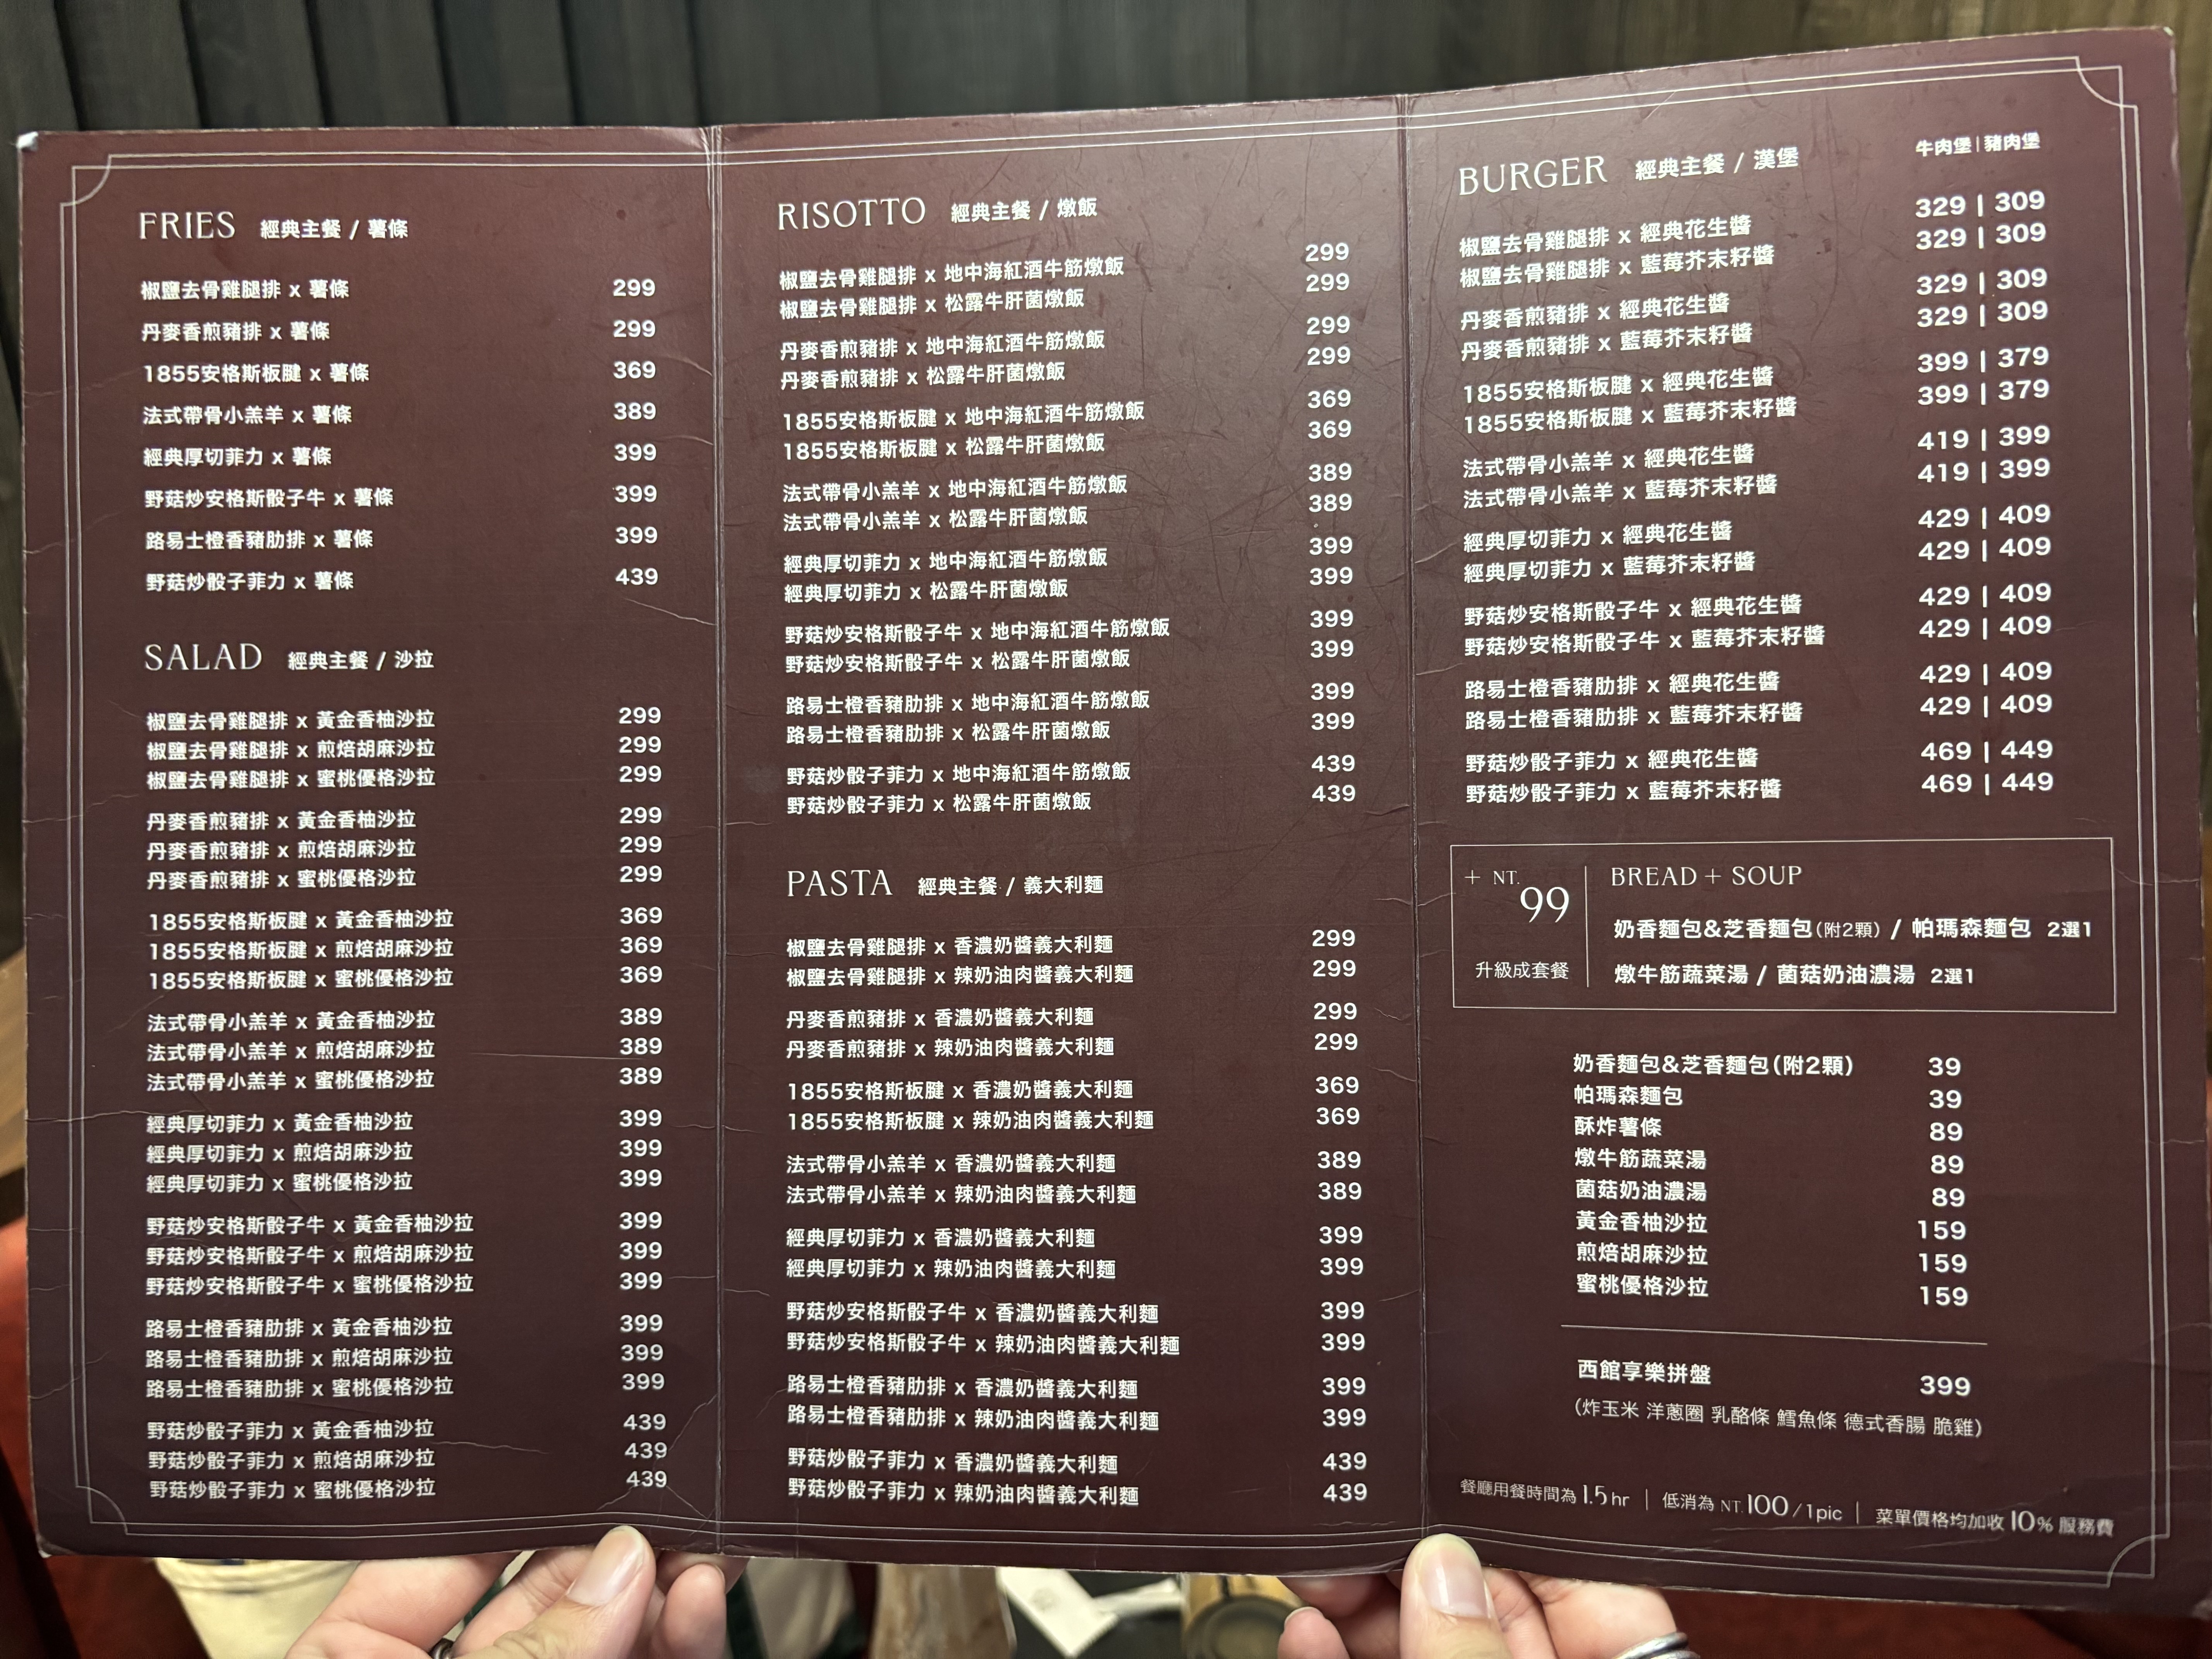 FRIES 經典主餐 / 薯條
椒鹽去骨雞腿排 x 薯條 299
丹麥香煎豬排 x 薯條 299
1855安格斯板腱 x 薯條 369
法式帶骨小羔羊 x 薯條 389
經典厚切菲力 x 薯條 399
野菇炒安格斯骰子牛 x 薯條 399
路易士橙香豬肋排 x 薯條 399
野菇炒骰子菲力 x 薯條 439
SALAD 經典主餐 / 沙拉
椒鹽去骨雞腿排 x 黃金香柚沙拉 299
椒鹽去骨雞腿排 x 煎焙胡麻沙拉 299
椒鹽去骨雞腿排 x 蜜桃優格沙拉 299
丹麥香煎豬排 x 黃金香柚沙拉 299
丹麥香煎豬排 x 煎焙胡麻沙拉 299
丹麥香煎豬排 x 蜜桃優格沙拉 299
1855安格斯板腱 x 黃金香柚沙拉 369
1855安格斯板腱 x 煎焙胡麻沙拉 369
1855安格斯板腱 x 蜜桃優格沙拉 369
法式帶骨小羔羊 x 黃金香柚沙拉 389
法式帶骨小羔羊 x 煎焙胡麻沙拉 389
法式帶骨小羔羊 x 蜜桃優格沙拉 389
經典厚切菲力 x 黃金香柚沙拉 399
經典厚切菲力 x 煎焙胡麻沙拉 399
經典厚切菲力 x 蜜桃優格沙拉 399
野菇炒安格斯骰子牛 x 黃金香柚沙拉 399
野菇炒安格斯骰子牛 x 煎焙胡麻沙拉 399
野菇炒安格斯骰子牛 x 蜜桃優格沙拉 399
路易士橙香豬肋排 x 黃金香柚沙拉 399
路易士橙香豬肋排 x 煎焙胡麻沙拉 399
路易士橙香豬肋排 x 蜜桃優格沙拉 399
野菇炒骰子菲力 x 黃金香柚沙拉 439
野菇炒骰子菲力 x 煎焙胡麻沙拉 439
野菇炒骰子菲力 x 蜜桃優格沙拉 439
RISOTTO 經典主餐 / 燉飯
椒鹽去骨雞腿排 x 地中海紅酒牛筋燉飯 299
椒鹽去骨雞腿排 x 松露牛肝菌燉飯 299
丹麥香煎豬排 x 地中海紅酒牛筋燉飯 299
丹麥香煎豬排 x 松露牛肝菌燉飯 299
1855安格斯板腱 x 地中海紅酒牛筋燉飯 369
1855安格斯板腱 x 松露牛肝菌燉飯 369
法式帶骨小羔羊 x 地中海紅酒牛筋燉飯 389
法式帶骨小羔羊 x 松露牛肝菌燉飯 389
經典厚切菲力 x 地中海紅酒牛筋燉飯 399
經典厚切菲力 x 松露牛肝菌燉飯 399
野菇炒安格斯骰子牛 x 地中海紅酒牛筋燉飯 399
野菇炒安格斯骰子牛 x 松露牛肝菌燉飯 399
路易士橙香豬肋排 x 地中海紅酒牛筋燉飯 399
路易士橙香豬肋排 x 松露牛肝菌燉飯 399
野菇炒骰子菲力 x 地中海紅酒牛筋燉飯 439
野菇炒骰子菲力 x 松露牛肝菌燉飯 439
PASTA 經典主餐 / 義大利麵
椒鹽去骨雞腿排 x 香濃奶醬義大利麵 299
椒鹽去骨雞腿排 x 辣奶油肉醬義大利麵 299
丹麥香煎豬排 x 香濃奶醬義大利麵 299
丹麥香煎豬排 x 辣奶油肉醬義大利麵 299
1855安格斯板腱 x 香濃奶醬義大利麵 369
1855安格斯板腱 x 辣奶油肉醬義大利麵 369
法式帶骨小羔羊 x 香濃奶醬義大利麵 389
法式帶骨小羔羊 x 辣奶油肉醬義大利麵 389
經典厚切菲力 x 香濃奶醬義大利麵 399
經典厚切菲力 x 辣奶油肉醬義大利麵 399
野菇炒安格斯骰子牛 x 香濃奶醬義大利麵 399
野菇炒安格斯骰子牛 x 辣奶油肉醬義大利麵 399
路易士橙香豬肋排 x 香濃奶醬義大利麵 399
路易士橙香豬肋排 x 辣奶油肉醬義大利麵 399
野菇炒骰子菲力 x 香濃奶醬義大利麵 439
野菇炒骰子菲力 x 辣奶油肉醬義大利麵 439
BURGER 經典主餐 / 漢堡 牛肉堡 | 豬肉堡
椒鹽去骨雞腿排 x 經典花生醬 329 | 309
椒鹽去骨雞腿排 x 藍莓芥末籽醬 329 | 309
丹麥香煎豬排 x 經典花生醬 329 | 309
丹麥香煎豬排 x 藍莓芥末籽醬 329 | 309
1855安格斯板腱 x 經典花生醬 399 | 379
1855安格斯板腱 x 藍莓芥末籽醬 399 | 379
法式帶骨小羔羊 x 經典花生醬 419 | 399
法式帶骨小羔羊 x 藍莓芥末籽醬 419 | 399
經典厚切菲力 x 經典花生醬 429 | 409
經典厚切菲力 x 藍莓芥末籽醬 429 | 409
野菇炒安格斯骰子牛 x 經典花生醬 429 | 409
野菇炒安格斯骰子牛 x 藍莓芥末籽醬 429 | 409
路易士橙香豬肋排 x 經典花生醬 429 | 409
路易士橙香豬肋排 x 藍莓芥末籽醬 429 | 409
野菇炒骰子菲力 x 經典花生醬 469 | 449
野菇炒骰子菲力 x 藍莓芥末籽醬 469 | 449
+ NT. 99
升級成套餐
BREAD + SOUP
奶香麵包&芝香麵包(附2顆) / 帕瑪森麵包 2選1
燉牛筋蔬菜湯 / 菌菇奶油濃湯 2選1
奶香麵包&芝香麵包(附2顆) 39
帕瑪森麵包 39
酥炸薯條 89
燉牛筋蔬菜湯 89
菌菇奶油濃湯 89
黃金香柚沙拉 159
煎焙胡麻沙拉 159
蜜桃優格沙拉 159
西館享樂拼盤 399
(炸玉米 洋蔥圈 乳酪條 鱈魚條 德式香腸 脆雞)
餐廳用餐時間為 1.5 hr | 低消為 NT. 100 / 1pic | 菜單價格均加收 10% 服務費